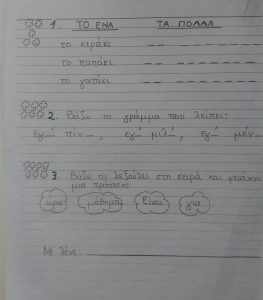 1. ΤΟ ΕΝΑ ΤΑ ΠΟΛΛΑ
το κεράκι _ _ _____
το παπάκι _ _ _____
το γατάκι _ _ _____
2. Βάζω το γράμμα που λείπει:
εγ_΄ πίν_, εγ_΄ μιλ_΄, εγ_΄ μέν_
3. Βάζω τις λεξούλες στη σειρά και φτιάχνω
μια πρόταση:
ώρα μάθημα Είναι για
Με λένε: ______